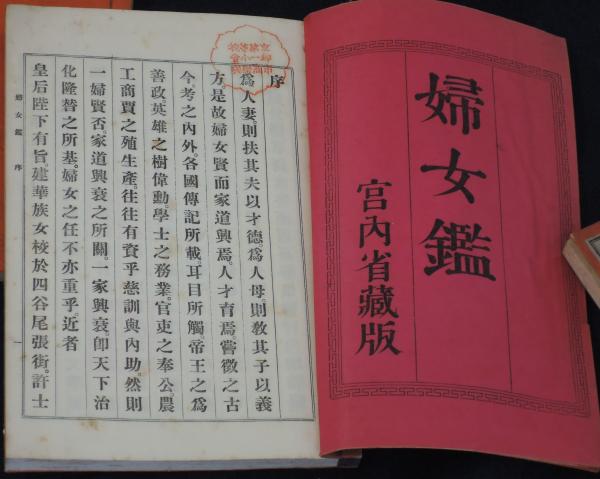 婦女鑑
宮內省藏版
序
爲人妻。則扶其夫以才德。爲人母。則教其子以義
方。是故婦女賢而家道興焉。人才育焉。嘗徵之古
今。考之內外。各國傳記所載。耳目所觸。帝王之爲
善政。英雄之樹偉勳。學士之務業。官吏之奉公。農
工商賈之殖生產。往往有資乎慈訓與內助。然則
一婦賢否。家道興衰之所關。一家興衰。卽天下治
化隆替之所基。婦女之任不亦重乎。近者
皇后陛下有旨。建華族女校於四谷尾張街。許士
婦女鑑 序
一